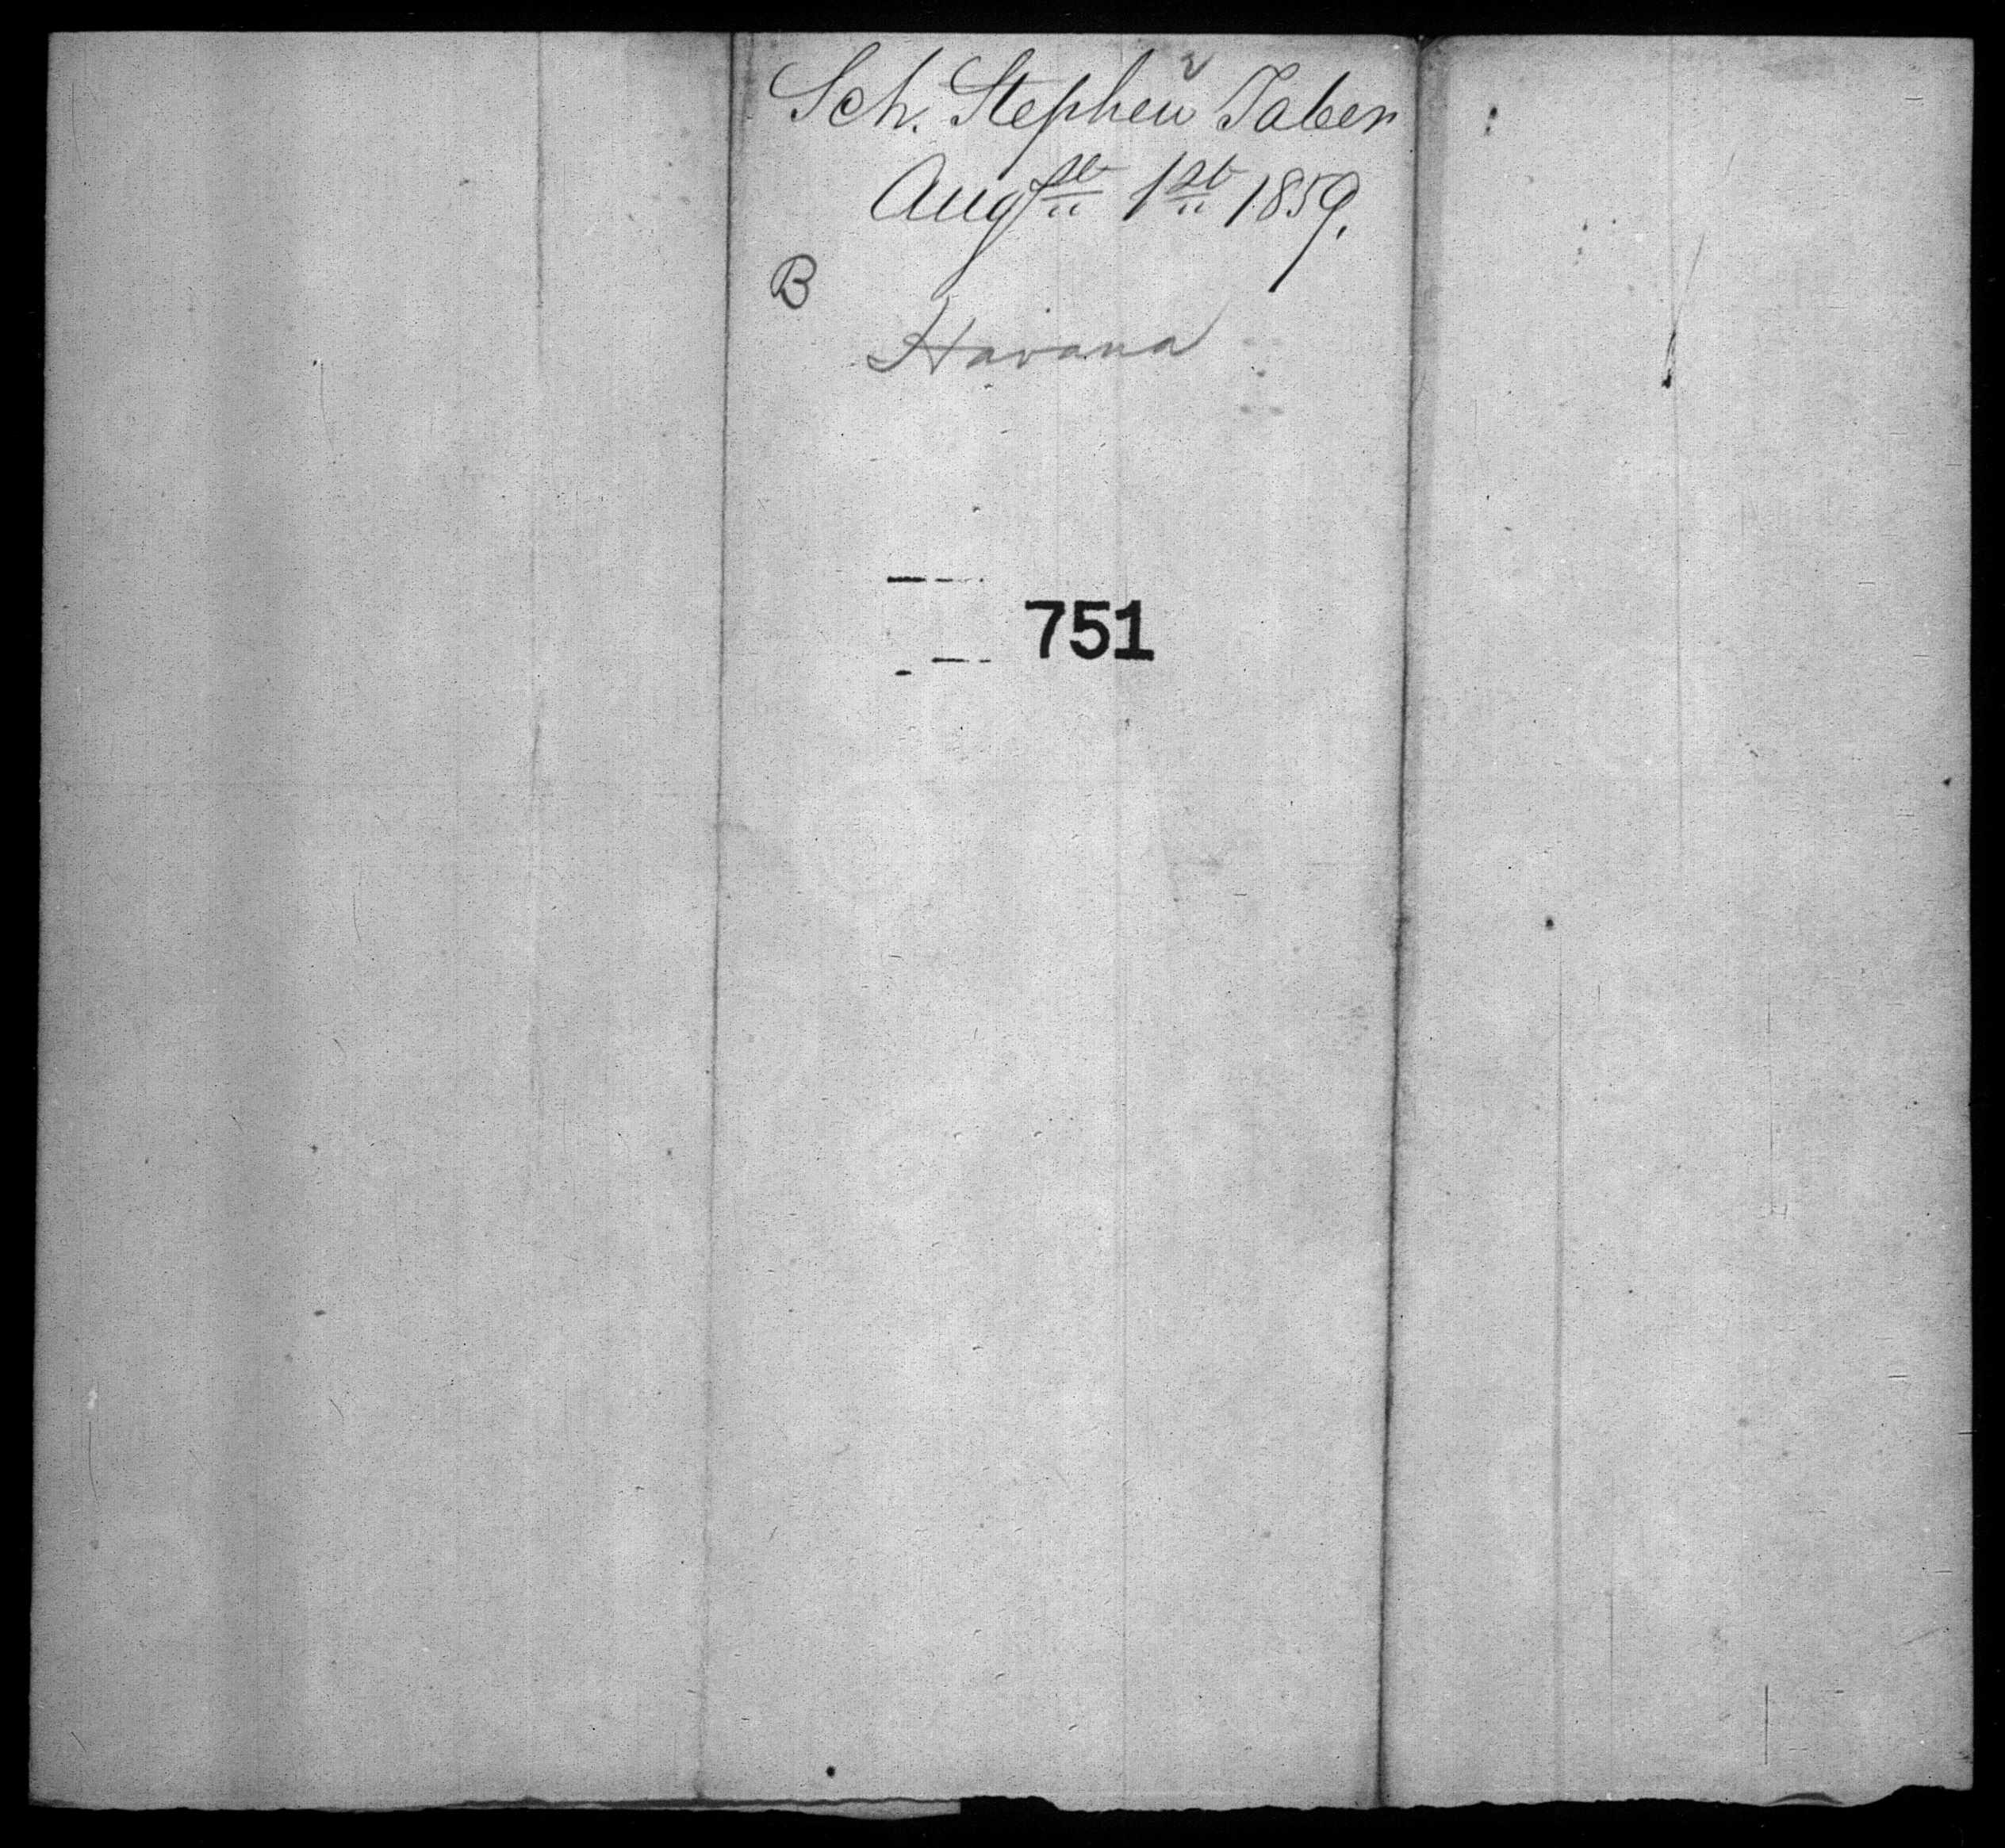 Sch. Stephen Taber
Augst 1st 1859.
B
Havana
751